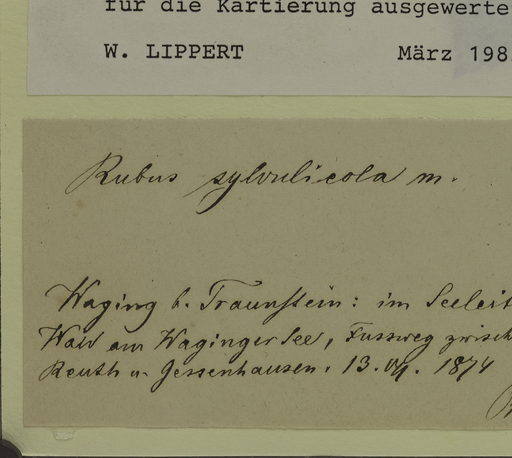 für die Kartierung ausgewerte
W. LIPPERT März 198
Rubus sylvulicola m.
Waging b. Traunstein: im Seeleit
Wald am Waginger See, Fussweg zwisch
Reuth u. Gessenhausen. 13. 1874